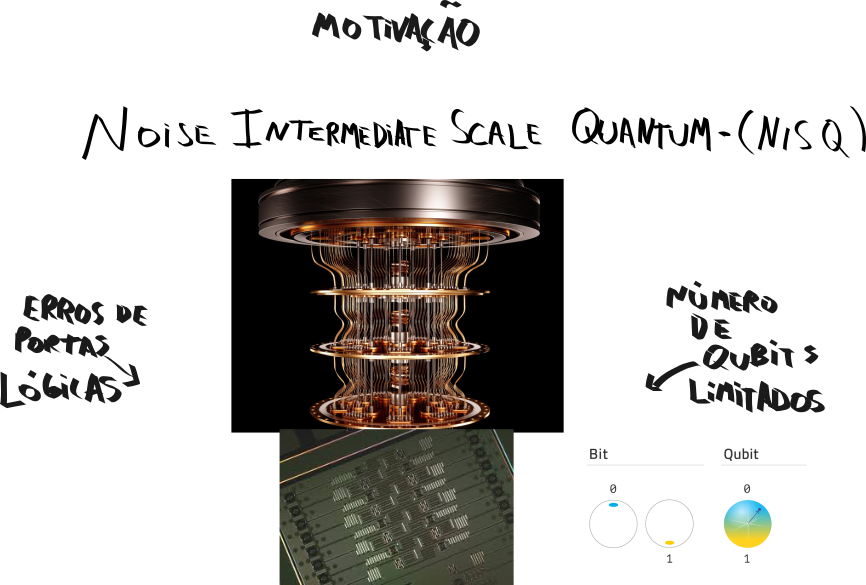 MOTIVAÇÃO
NOISE INTERMEDIATE SCALE QUANTUM-(NISQ)
ERROS DE
PORTAS
LÓGICAS
NÚMERO
DE
QUBITS
LIMITADOS
Bit
Qubit
0
0
1
1